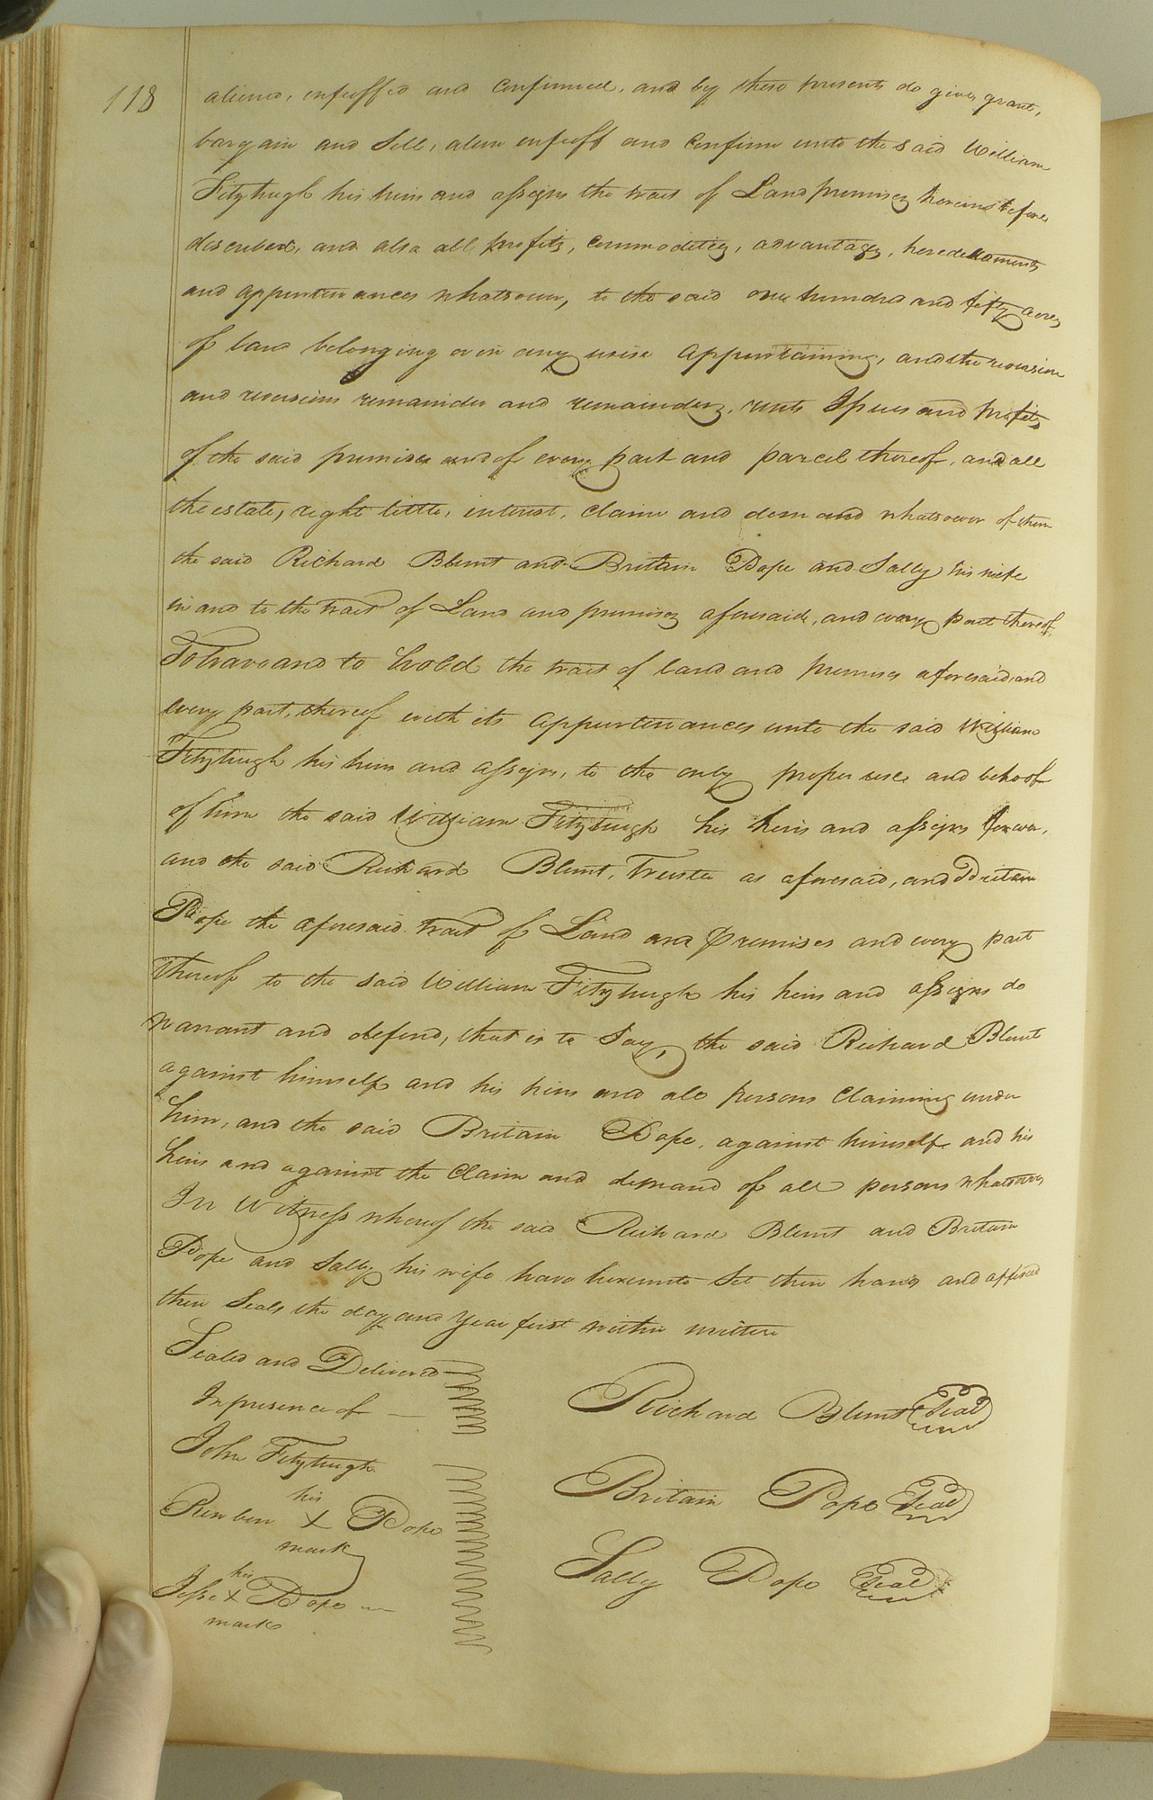 118
aliened, enfeoffed and confirmed, and by these presents do give, grant,
bargain and Sell, alien enfeoff and Confirm unto the said William
Fitzhugh his heirs and assigns the tract of Land premises hereinbefore
described, and also all profits, commodities, advantages, heredetaments
and appurtenances whatsoever, to the said one hundred and fifty acres
of land belonging or in any wise appurtaining, and the reversion
and reversions remainder and remainders, rents Issues and profits
of the said premises and of every part and parcel thereof, and all
the estate, right tittle, interest, claim and demand whatsoever of them
the said Richard Blunt and Britain Pope and Sally his wife
in and to the tract of Land and premises aforesaid, and every part thereof.
To have and to hold the tract of land and premises aforesaid and
every part, thereof with its appurtenances unto the said William
Fitzhugh his heirs and assigns, to the only proper use and behoof
of him the said William Fitzhugh his heirs and assigns forever.
and the said Richard Blunt, Trustee as aforesaid, and Britain
Pope the aforesaid tract of Land and Premises and every part
thereof to the said William Fitzhugh his heirs and assigns do
warrant and defend, that is to Say, the said Richard Blunt
against himself and his heirs and all persons Claiming under
him, and the said Britain Pope, against himself and his
heirs and against the Claim and demand of all persons whatsoever
In Witness whereof the said Richard Blunt and Britain
Pope and Sally his wife have hereunto Set their hands and affixed
their Seals the day and Year first within written
Sealed and Delivered
In presence of
John Fitzhugh
his
Reuben X Pope
mark
his
Jesse X Pope
mark
Richard Blunt Seal
Britain Pope Seal
Sally Pope Seal